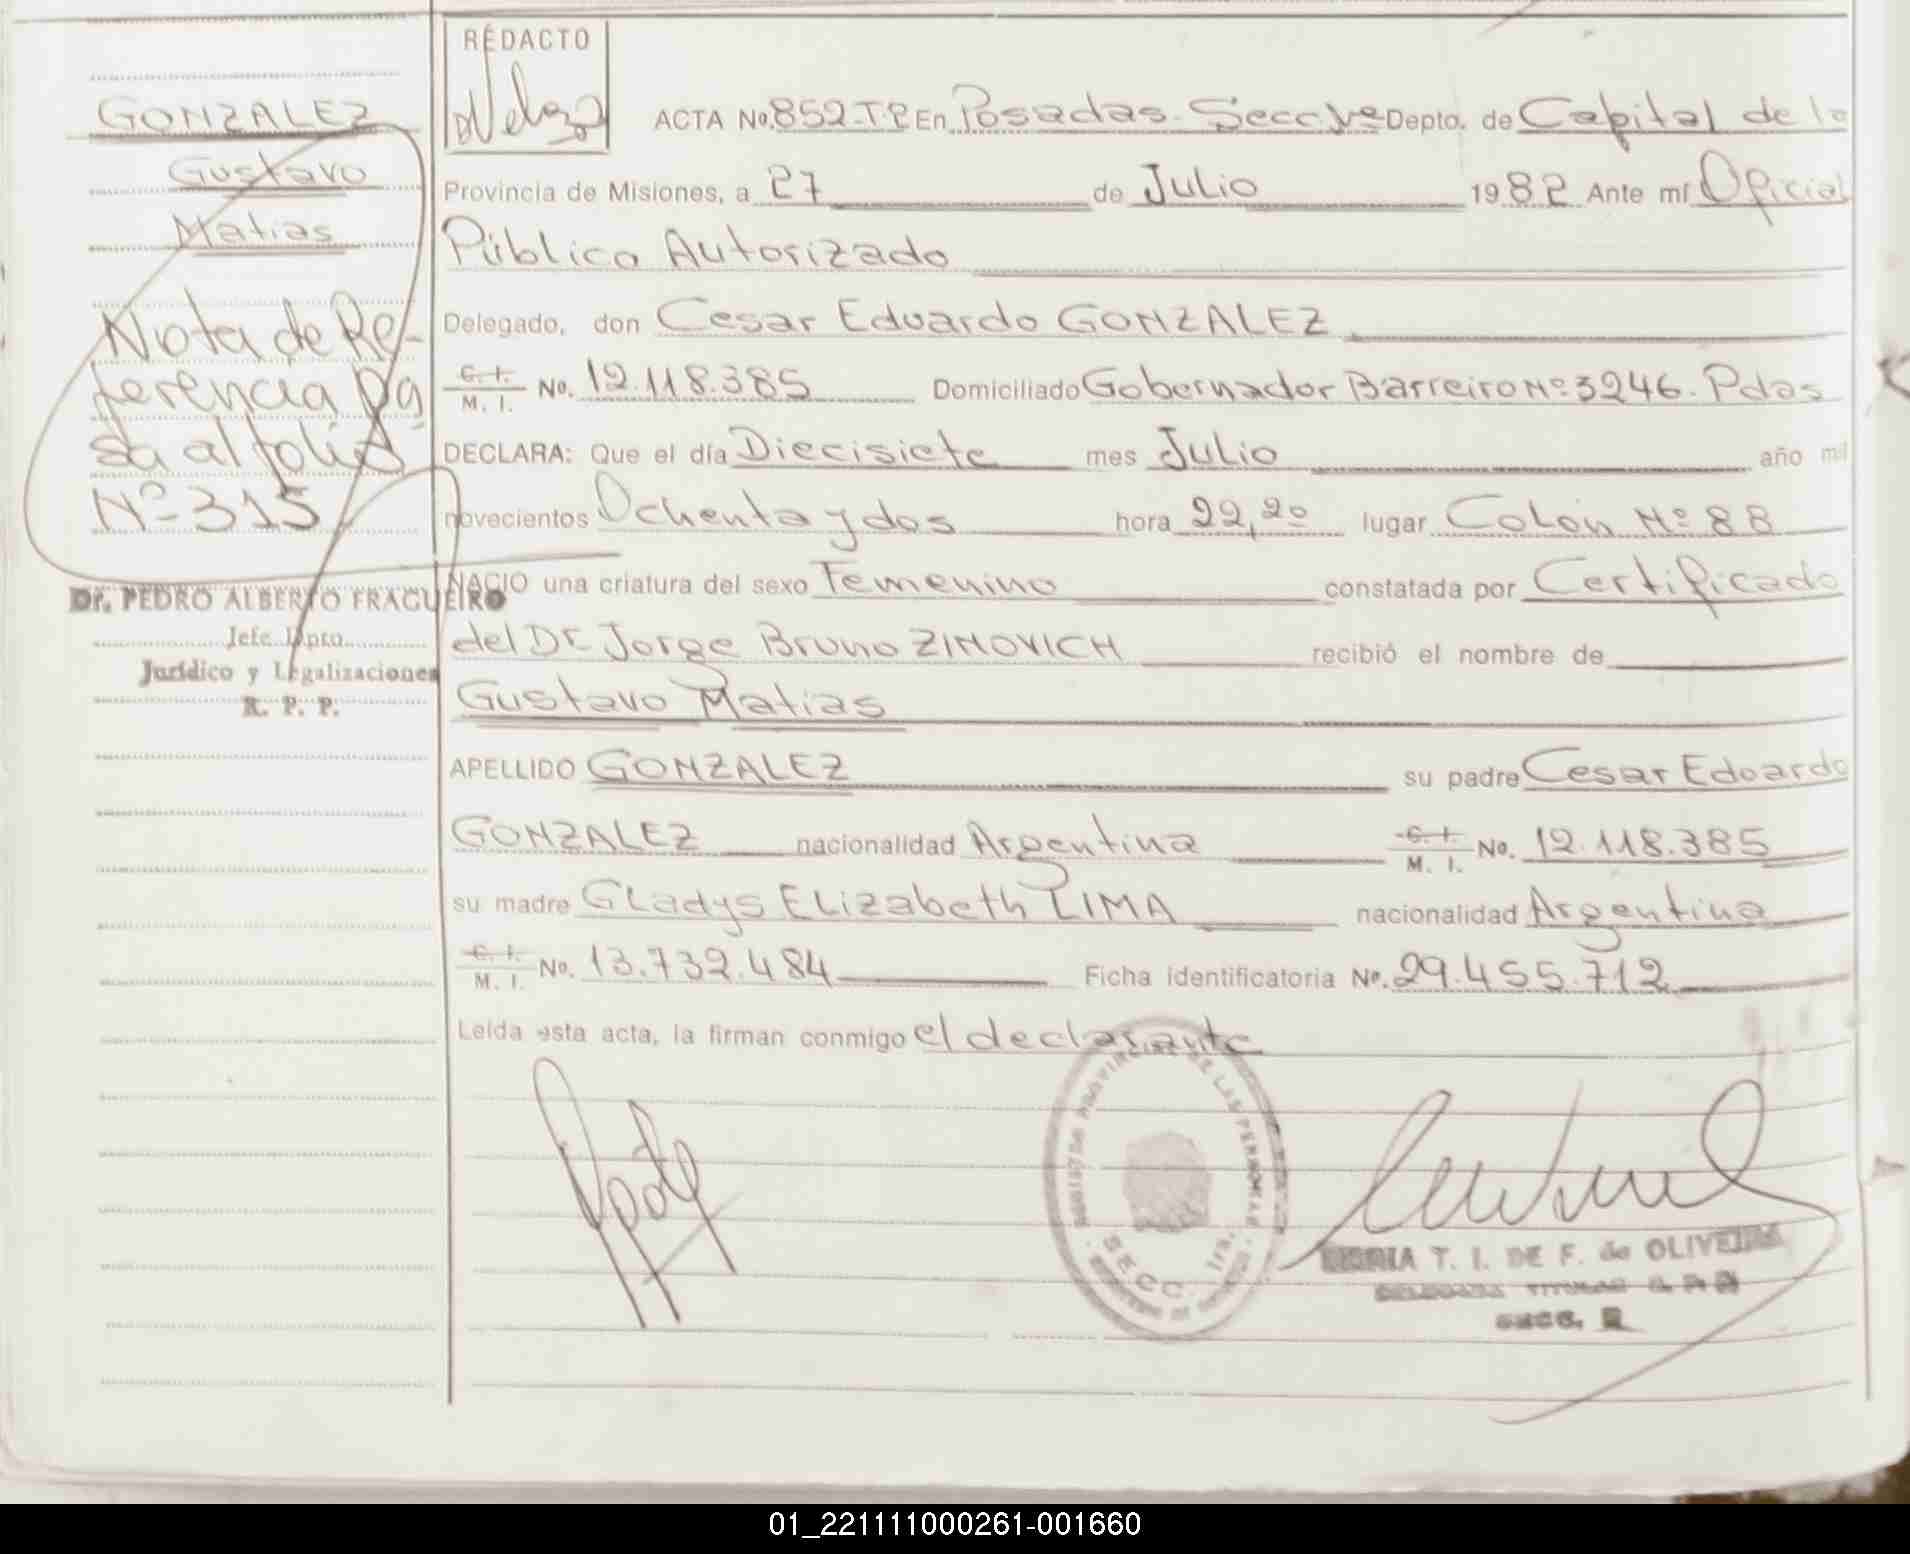 REDACTO
GONZALEZ
Gustavo
Matias
Nota de Re-
ferencia pa
sa al folio
Nº 315
Dr. PEDRO ALBERTO FRAGUEIRO
Jefe Dpto.
Jurídico y Legalizaciones
R. P. P.
ACTA No. 852-T2 En Posadas-Secc 1ª Depto. de Capital de la
Provincia de Misiones, a 27 de Julio 1982 Ante mí Oficial
Público Autorizado
Delegado, don Cesar Eduardo GONZALEZ
C. I. M. I. No. 12.118.385 Domiciliado Gobernador Barreiro Nº 3246. Pdas
DECLARA: Que el día Diecisiete mes Julio año mil
novecientos Ochenta y dos hora 22,20 lugar Colón Nº 88
NACIO una criatura del sexo Femenino constatada por Certificado
del Dr Jorge Bruno ZINOVICH recibió el nombre de
Gustavo Matias
APELLIDO GONZALEZ su padre Cesar Edoardo
GONZALEZ nacionalidad Argentina C. I. M. I. No. 12.118.385
su madre Gladys Elizabeth LIMA nacionalidad Argentina
C. I. M. I. No. 13.732.484 Ficha identificatoria Nº. 29.455.712
Leída esta acta, la firman conmigo el declarante
PROVINCIAL DE LAS PERSONAS
SECC. 1ra.
T. I. DE F. de OLIVEIRA
SECC.
01_221111000261-001660